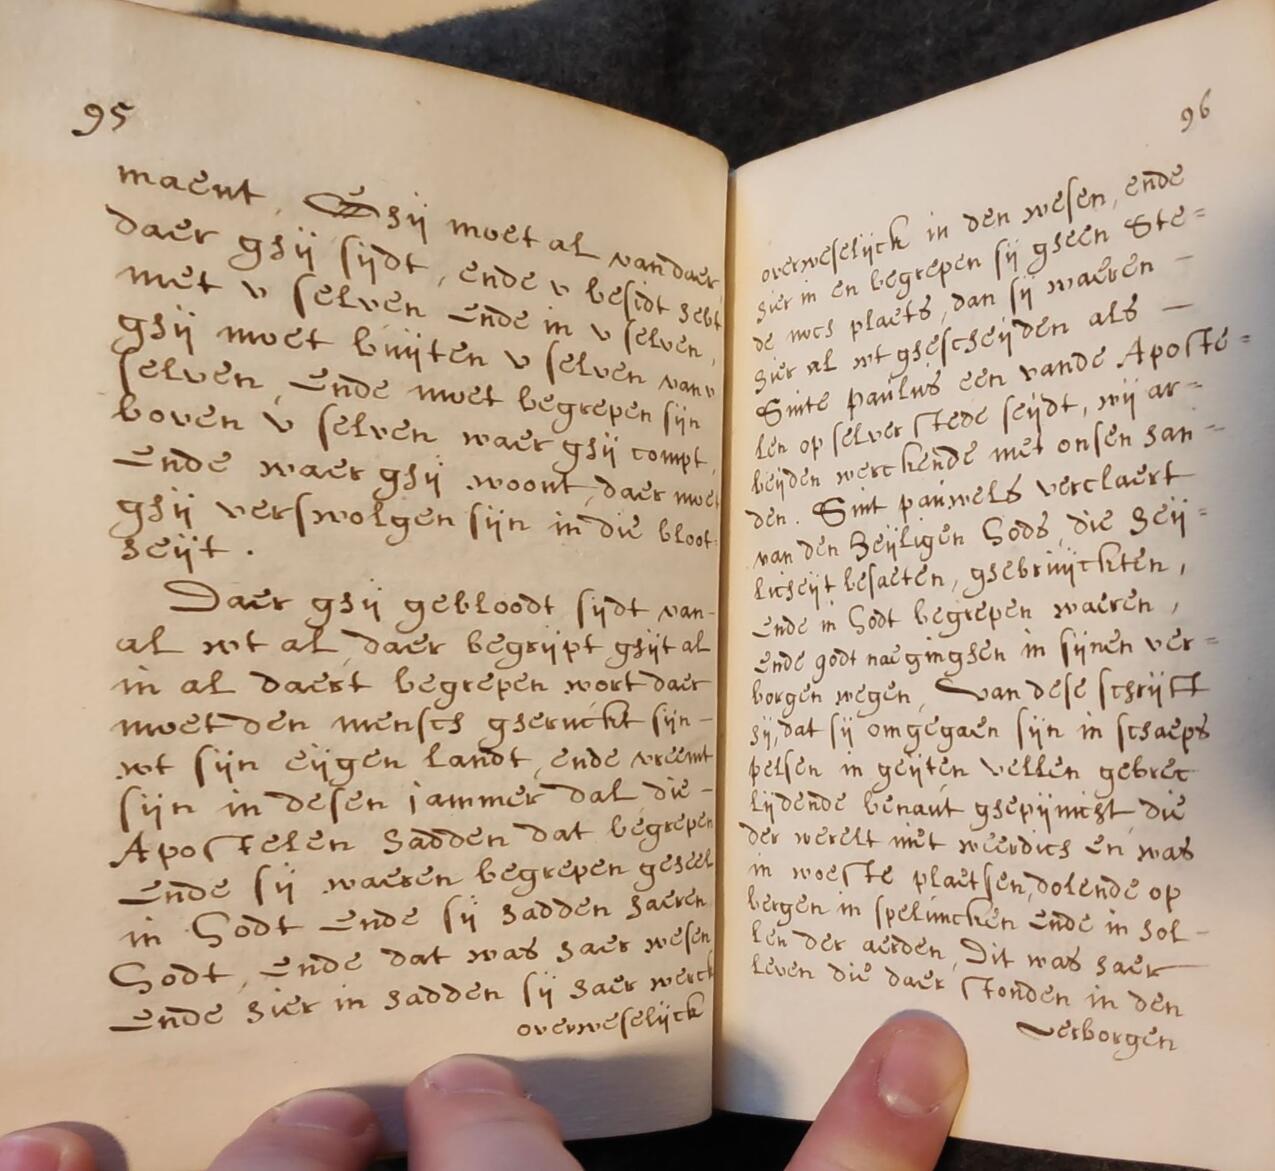 95
maent, Ghij moet al van daer
daer ghij sijdt, ende v besidt hebt
met v selven ende in v selven,
ghij moet buijten v selven van v
selven, ende moet begrepen sijn
boven v selven waer ghij compt,
ende waer ghij woont, daer moet
ghij verswolgen sijn in die bloot=
heijt.
Daer ghij gebloodt sijdt van-
al wt al, daer begrijpt ghijt al
in al daert begrepen wort daer
moet den mensch gheruckt sijn-
wt sijn eijgen landt, ende vreemt
sijn in desen jammer dal, die-
Apostelen hadden dat begrepen
ende sij waeren begrepen geheel
in Godt ende sij hadden haeren
Godt, ende dat was haer wesen
ende hier in hadden sij haer werck
overweselijck
96
overweselijck in den wesen, ende
hier in en begrepen sij gheen Ste=
de noch plaets, dan sij waeren-
hier al wt ghescheijden als-
Sinte paulus een vande Aposte=
len op selver stede seijdt, wij ar=
beijden werckende met onsen han=
den. Sint pauwels verclaert
van den heijligen Gods, die heij=
licheijt besaeten, ghebruijckten,
ende in Godt begrepen waeren,
ende godt naeginghen in sijnen ver=
borgen wegen, van dese schrijft
hij, dat sij omgegaen sijn in schaeps
pelsen in geijten vellen gebrec
lijdende benaut ghepijnicht, die
der werelt niet weerdich en was
in woeste plaetsen, dolende op
bergen in speluncken ende in hol-
len der aerden, Dit was haer
leven die daer stonden in den
verborgen